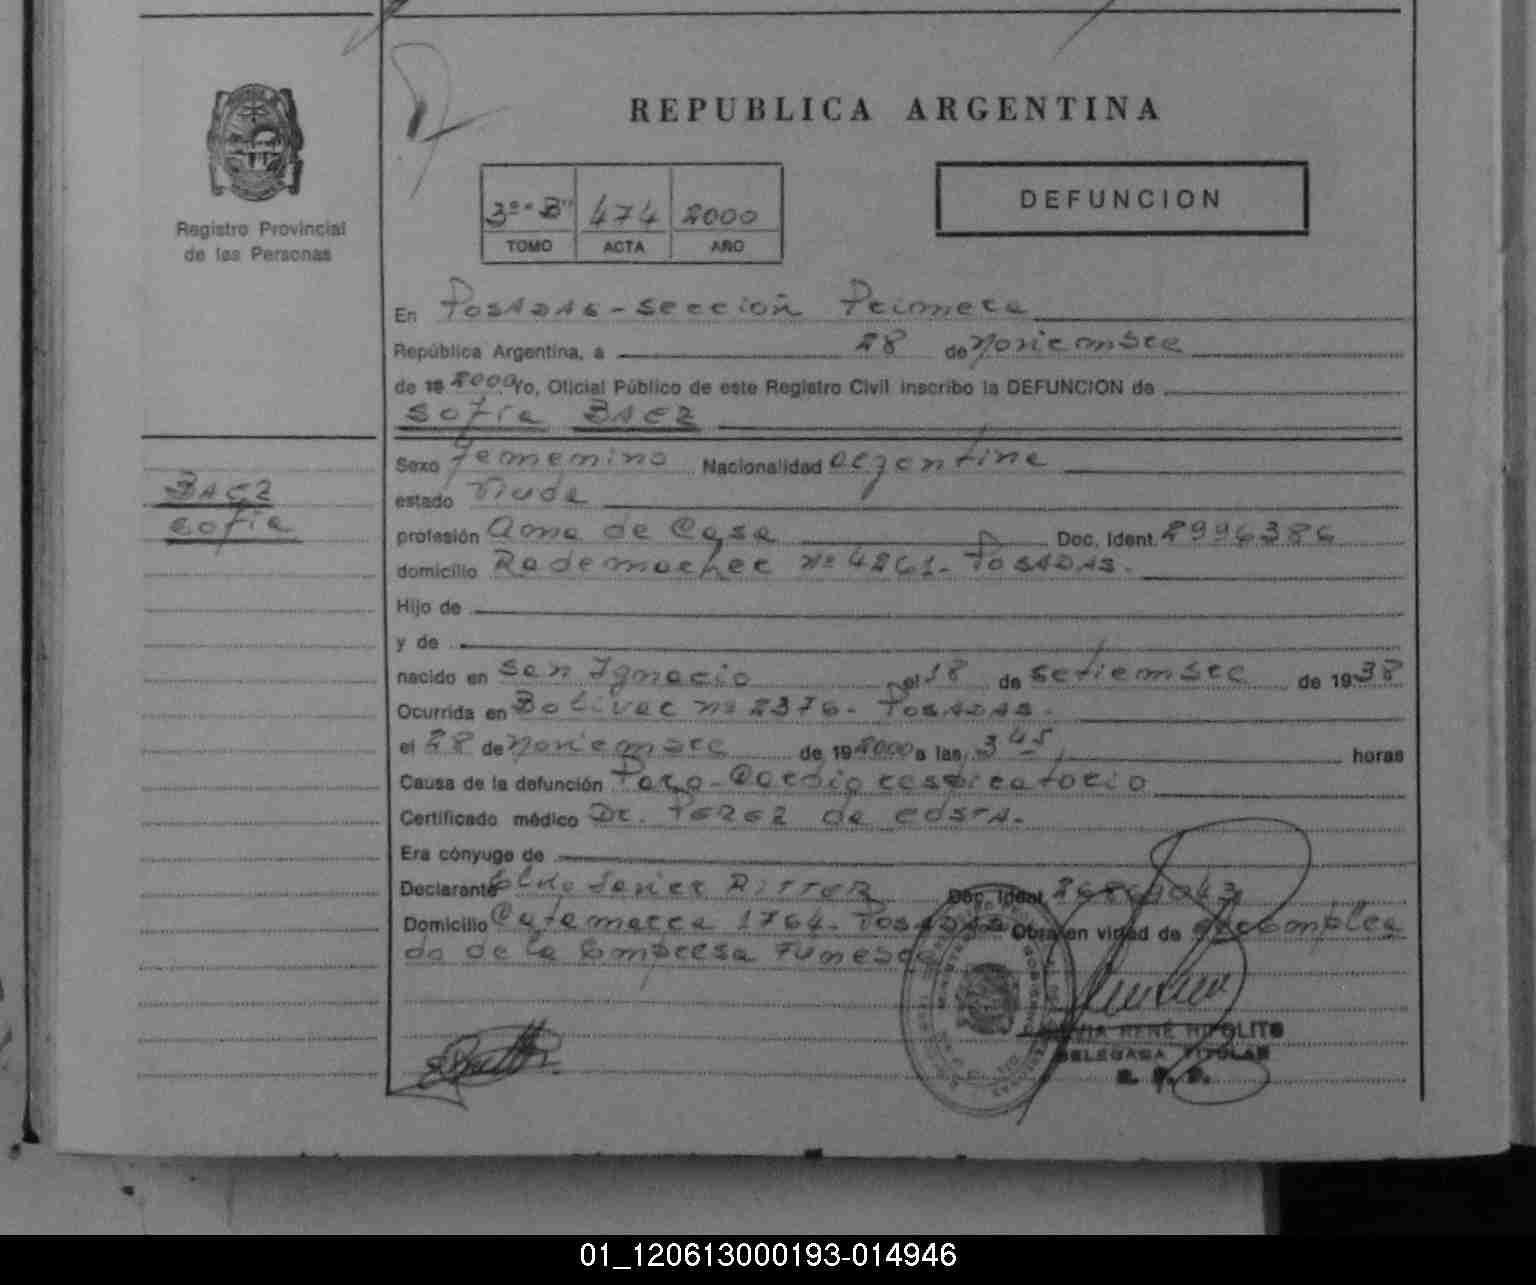 REPUBLICA ARGENTINA
Registro Provincial
de las Personas
3º "B" 474 2000
TOMO ACTA AÑO
DEFUNCION
En Posadas - Sección Primera
República Argentina, a 28 de Noviembre
de 19 2000 Yo, Oficial Público de este Registro Civil inscribo la DEFUNCION de
Sofia BAEZ
BAEZ
Sofia
Sexo femenino Nacionalidad argentina
estado Viuda
profesión Ama de Casa Doc. Ident. 2996386
domicilio Rademacher Nº 4261 - Posadas.
Hijo de
y de
nacido en San Ignacio el 18 de Setiembre de 1938
Ocurrida en Bolivar Nº 2376 - Posadas.
el 28 de Noviembre de 19 2000 a las 3 45 horas
Causa de la defunción Paro-Cardio respiratorio
Certificado médico Dr. Perez da Costa.
Era cónyuge de
Declarante Javier RITTER Doc. Ident.
Domicilio Catamarca 1764 - Posadas Obra en virtud de ser emplea
do de la Empresa Funebre
RENÉ HIPOLITO
DELEGADA TITULAR
01_120613000193-014946